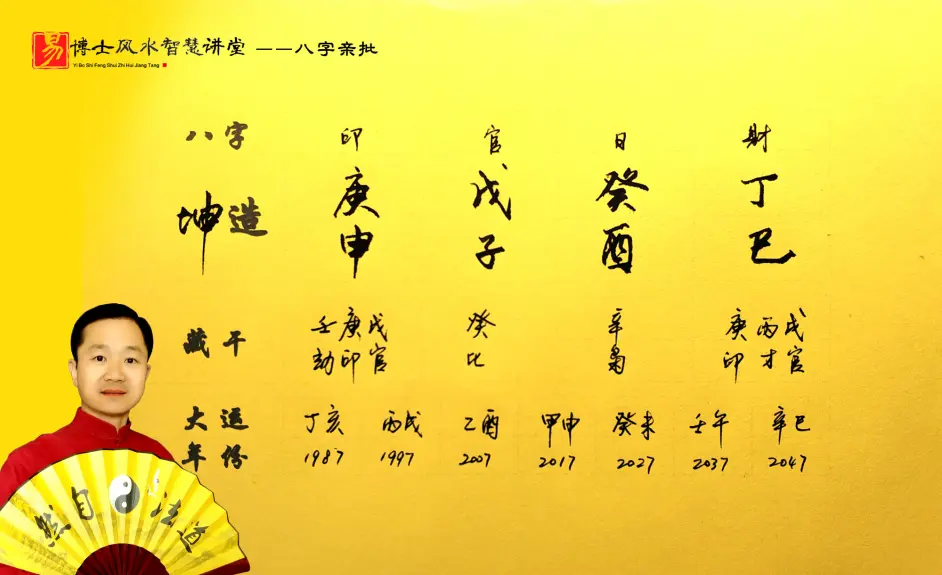 易 博士风水智慧讲堂 ——八字亲批
Yi Bo Shi Feng Shui Zhi Hui Jiang Tang
八字 印 官 日 财
坤造 庚 戊 癸 丁
申 子 酉 巳
藏干 壬庚戊 癸 辛 庚丙戊
劫印官 比 枭 印才官
大运 丁亥 丙戌 乙酉 甲申 癸未 壬午 辛巳
年份 1987 1997 2007 2017 2027 2037 2047
然自法道